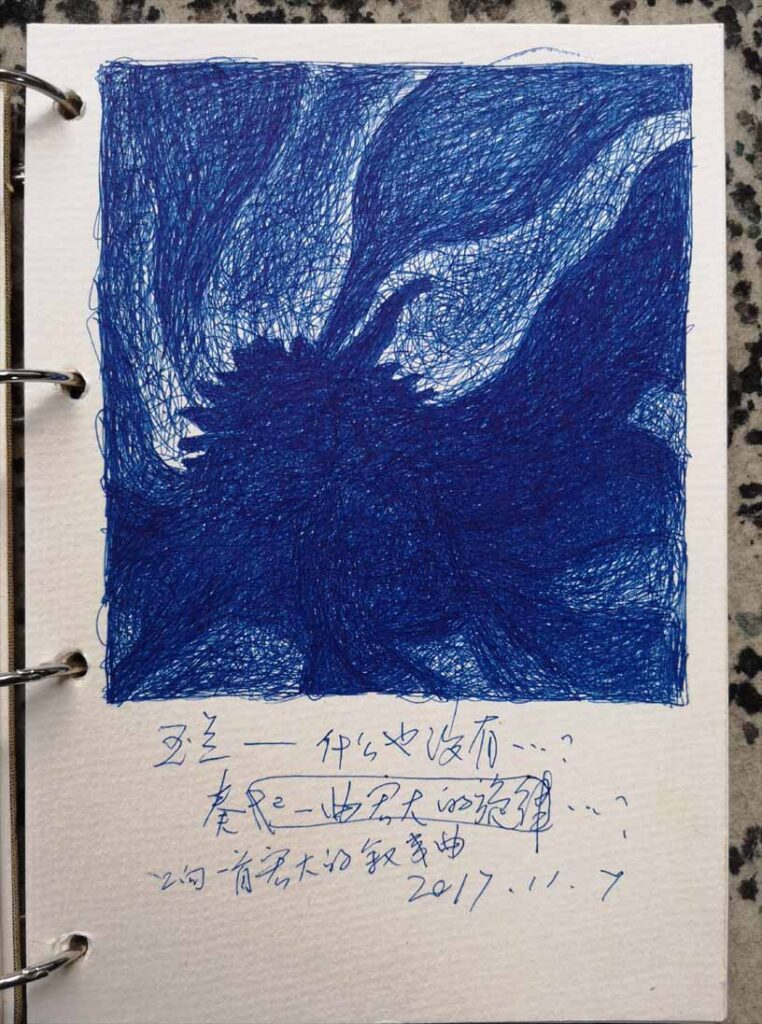 玉兰 — 什么也没有 … ?
奏起一曲宏大的旋律 … ?
响一首宏大的叙事曲
2017.11.7